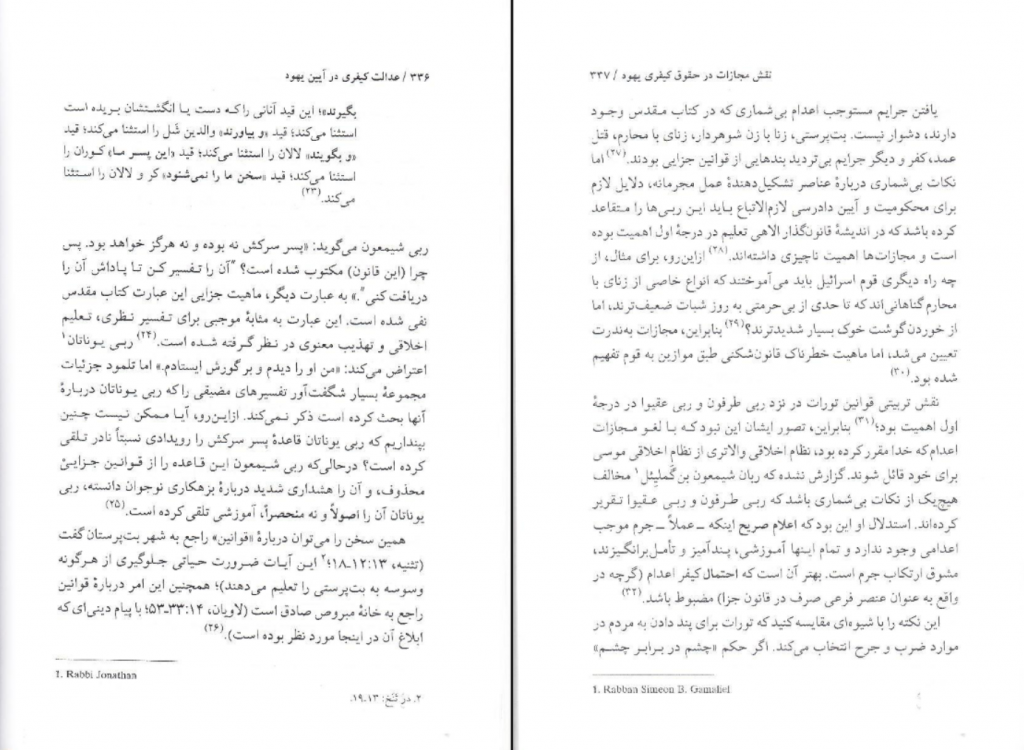 ۳۳۶ / عدالت کیفری در آیین یهود
بگیرند»؛ این قید آنانی را که دست یا انگشتشان بریده است
استثنا می‌کند؛ قید «و بیاورند» والدین شَل را استثنا می‌کند؛ قید
«و بگویند» لالان را استثنا می‌کند؛ قید «این پسر ما» کوران را
استثنا می‌کند؛ قید «سخن ما را نمی‌شنود» کر و لالان را استثنا
می‌کند.(۲۳)
ربی شیمعون می‌گوید: «پسر سرکش نه بوده و نه هرگز خواهد بود. پس
چرا (این قانون) مکتوب شده است؟ "آن را تفسیر کن تا پاداش آن را
دریافت کنی".» به عبارت دیگر، ماهیت جزایی این عبارت کتاب مقدس
نفی شده است. این عبارت به مثابهٔ موجبی برای تفسیر نظری، تعلیم
اخلاقی و تهذیب معنوی در نظر گرفته شده است.(۲۴) ربی یوناتان۱
اعتراض می‌کند: «من او را دیدم و بر گورش ایستادم.» اما تلمود جزئیات
مجموعهٔ بسیار شگفت‌آور تفسیرهای مضیقی را که ربی یوناتان دربارهٔ
آنها بحث کرده است ذکر نمی‌کند. ازاین‌رو، آیا ممکن نیست چنین
بپنداریم که ربی یوناتان قاعدهٔ پسر سرکش را رویدادی نسبتاً نادر تلقی
کرده است؟ درحالی‌که ربی شیمعون این قاعده را از قوانین جزایئ
محذوف، و آن را هشداری شدید دربارهٔ بزهکاری نوجوان دانسته، ربی
یوناتان آن را اصولاً و نه منحصراً، آموزشی تلقی کرده است.(۲۵)
همین سخن را می‌توان دربارهٔ «قوانین» راجع به شهر بت‌پرستان گفت
(تثنیه، ۱۲:۱۳-۱۸؛۲ این آیات ضرورت حیاتی جلوگیری از هرگونه
وسوسه به بت‌پرستی را تعلیم می‌دهند)؛ همچنین این امر دربارهٔ قوانین
راجع به خانهٔ مبروص صادق است (لاویان، ۳۳:۱۴-۵۳؛ با پیام دینی‌ای که
ابلاغ آن در اینجا مورد نظر بوده است).(۲۶)
1. Rabbi Jonathan
۲. در تَنَخ: ۱۳-۱۹.
نقش مجازات در حقوق کیفری یهود / ۳۳۷
یافتن جرایم مستوجب اعدام بی‌شماری که در کتاب مقدس وجود
دارند، دشوار نیست. بت‌پرستی، زنا با زن شوهردار، زنای با محارم، قتل
عمد، کفر و دیگر جرایم بی‌تردید بندهایی از قوانین جزایی بودند.(۲۷) اما
نکات بی‌شماری دربارهٔ عناصر تشکیل‌دهندهٔ عمل مجرمانه، دلایل لازم
برای محکومیت و آیین دادرسی لازم‌الاتباع باید این ربی‌ها را متقاعد
کرده باشد که در اندیشهٔ قانون‌گذار الاهی تعلیم در درجهٔ اول اهمیت بوده
است و مجازات‌ها اهمیت ناچیزی داشته‌اند.(۲۸) ازاین‌رو، برای مثال، از
چه راه دیگری قوم اسرائیل باید می‌آموختند که انواع خاصی از زنای با
محارم گناهانی‌اند که تا حدی از بی‌حرمتی به روز شبات ضعیف‌ترند، اما
از خوردن گوشت خوک بسیار شدیدترند؟(۲۹) بنابراین، مجازات به‌ندرت
تعیین می‌شد، اما ماهیت خطرناک قانون‌شکنی طبق موازین به قوم تفهیم
شده بود.(۳۰)
نقش تربیتی قوانین تورات در نزد ربی طرفون و ربی عقیوا در درجهٔ
اول اهمیت بود؛(۳۱) بنابراین، تصور ایشان این نبود که با لغو مجازات
اعدام که خدا مقرر کرده بود، نظام اخلاقی والاتری از نظام اخلاقی موسی
برای خود قائل شوند. گزارش نشده که ربان شیمعون بن گملیئل۱ مخالف
هیچ‌یک از نکات بی‌شماری باشد که ربی طرفون و ربی عقیوا تقریر
کرده‌اند. استدلال او این بود که اعلام صریح اینکه ــ عملاً ــ جرم موجب
اعدامی وجود ندارد و تمام اینها آموزشی، پندآمیز و تأمل‌برانگیزند،
مشوق ارتکاب جرم است. بهتر آن است که احتمال کیفر اعدام (گرچه در
واقع به عنوان عنصر فرعی صرف در قانون جزا) مضبوط باشد.(۳۲)
این نکته را با شیوه‌ای مقایسه کنید که تورات برای پند دادن به مردم در
موارد ضرب و جرح انتخاب می‌کند. اگر حکم «چشم در برابر چشم»
1. Rabban Simeon B. Gamaliel